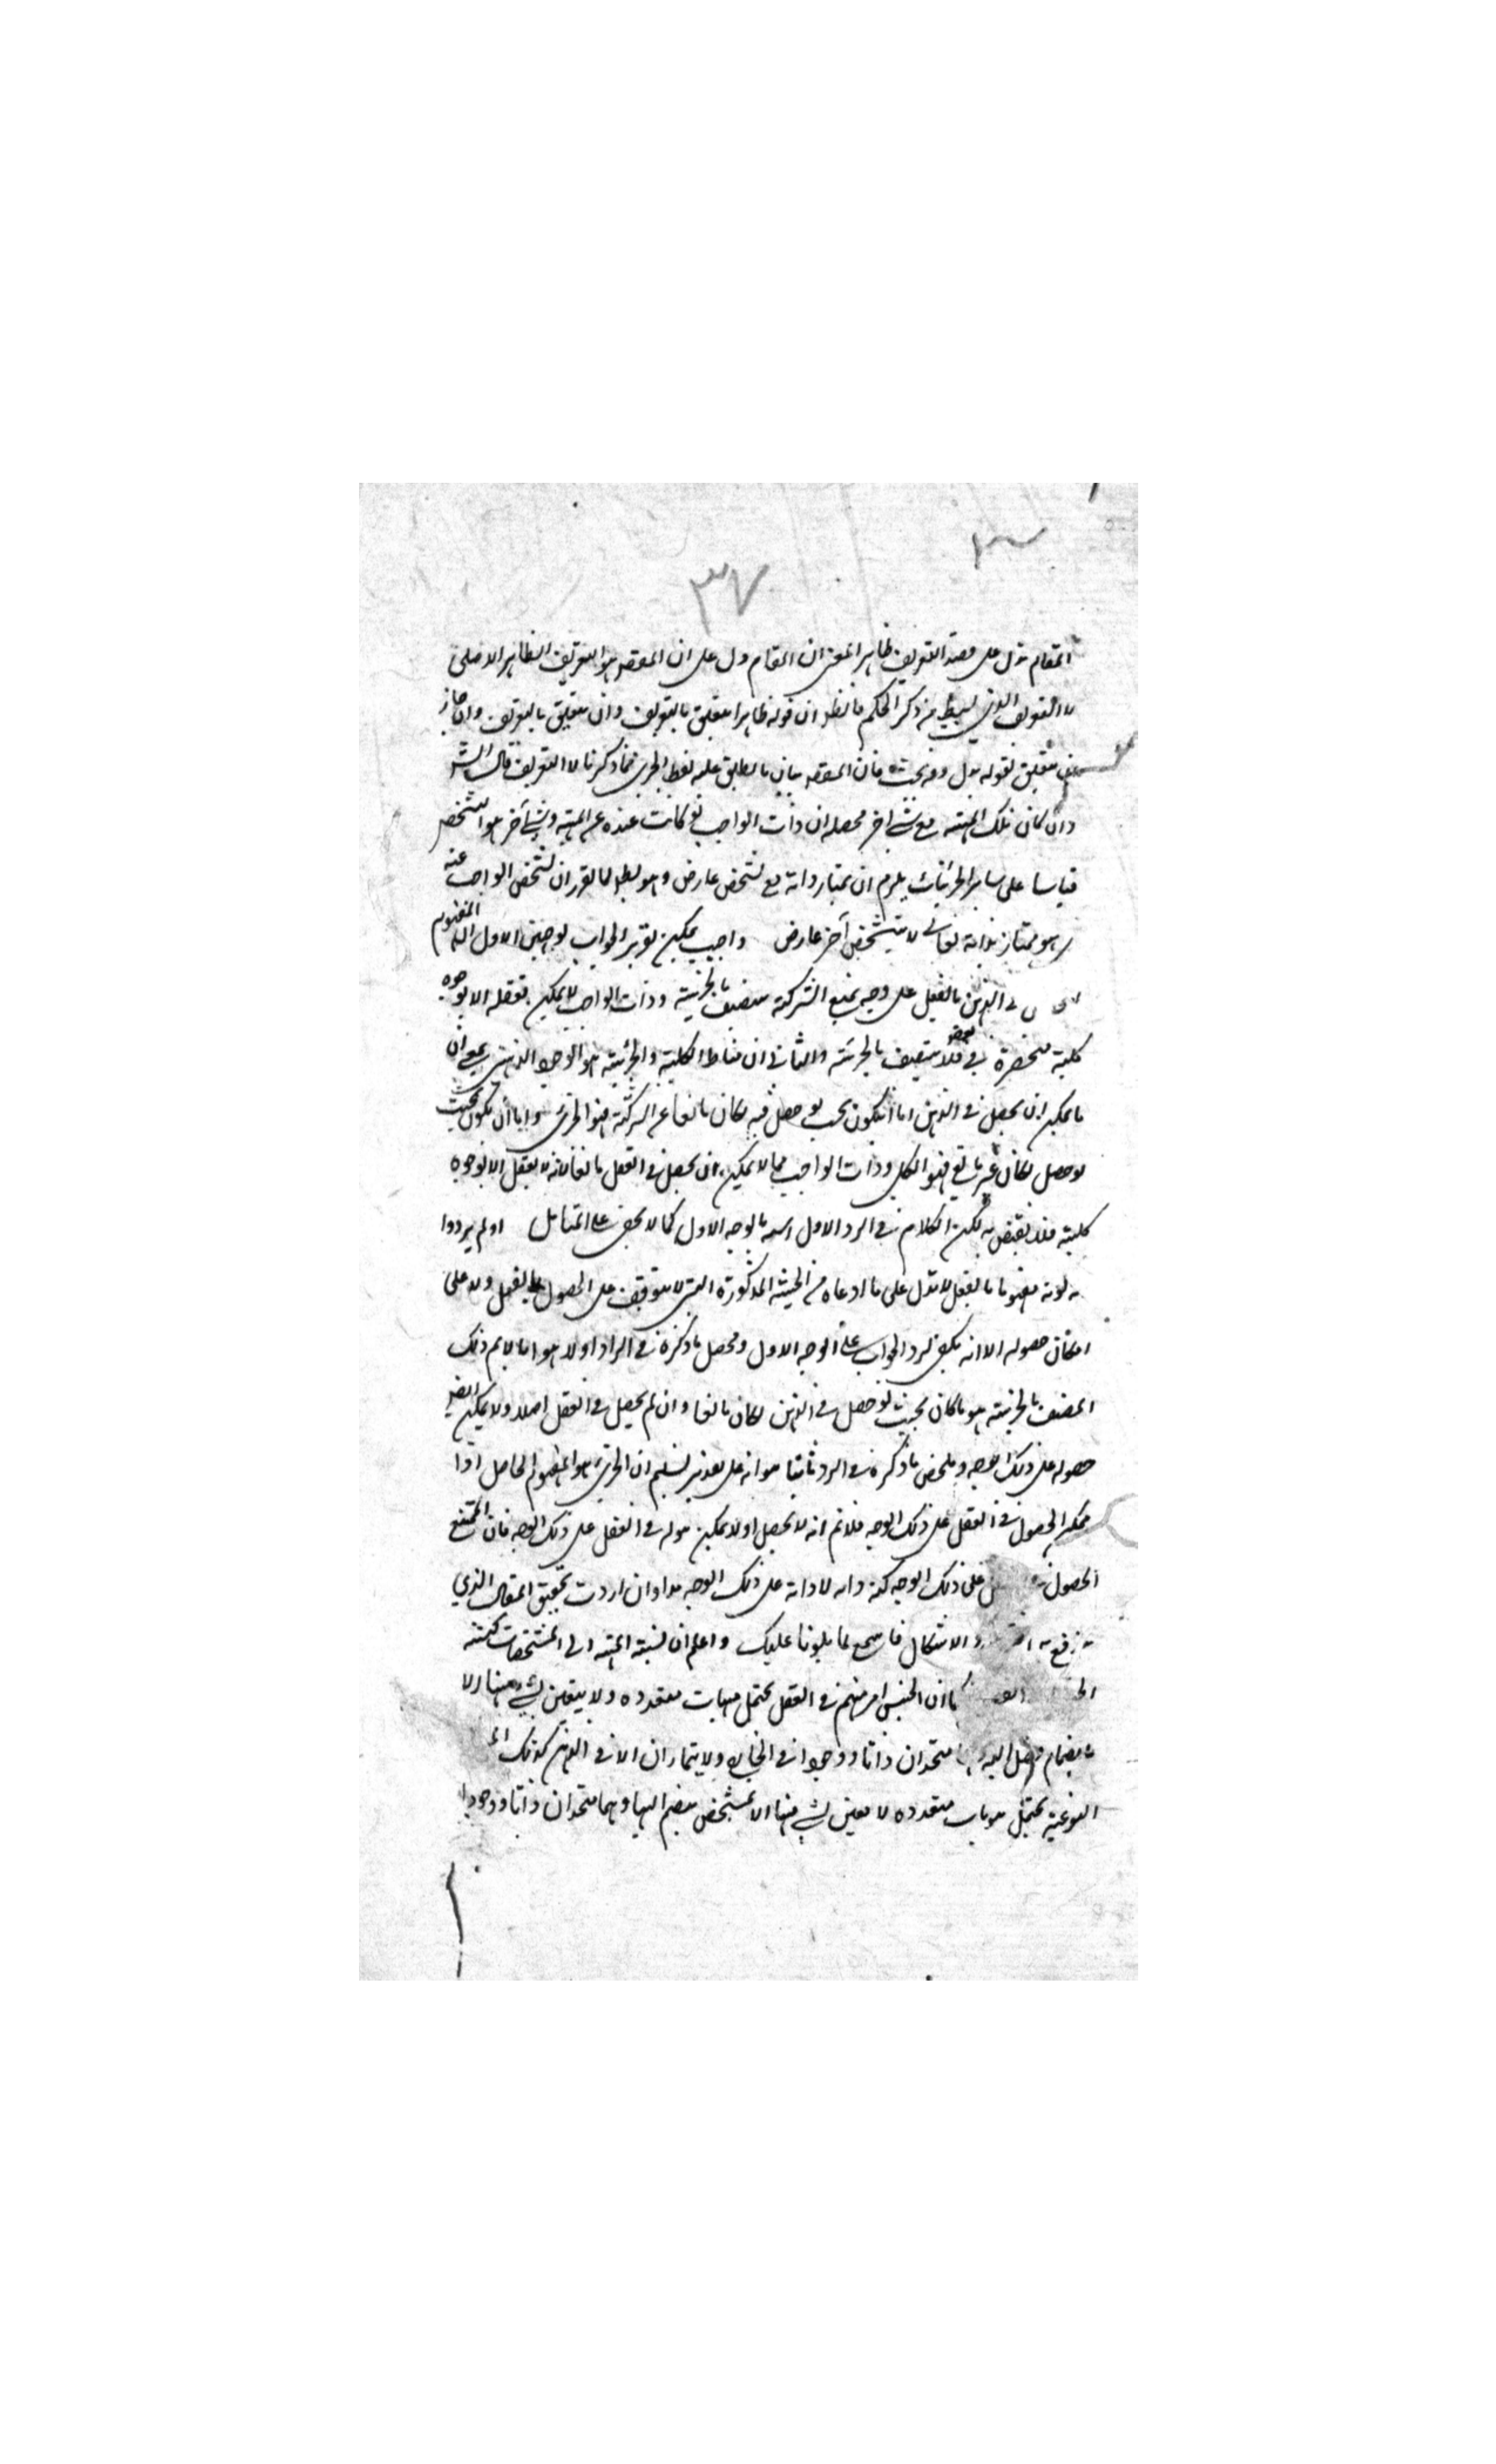 ٣٧
المقام تدل على قصد التعريف ظاهر المعنى ان المقام دل على ان المقصود هو التعريف الظاهر الاصلى
لا التعريف الذى من ذكر الحكم فالظ ان قوله ظاهرا متعلق بالتعريف وان تعلق بالتعريف وان جاز
متعلق بقوله يدل وفيه بحث فان المقصد بيان ما يطلق عليه لفظ الجزئى فما ذكرنا لا التعريف قال الش
وان كان تلك المهية مع شئ اخر محصله ان ذات الواجب لو كانت عنده عن المهية وشئ آخر هو التشخص
قياسا على ساير الجزئيات يلزم ان يمتاز ذاته مع تشخص عارض وهو بط لما تقرر ان تشخص الواجب عينه
وهو ممتاز بذاته تعالى لا بتشخص آخر عارض واجيب يمكن تقرير الجواب بوجهين الاول ان المفهوم
فى الذهن بالفعل على وجه يمنع الشركة متصف بالجزئية وذات الواجب لا يمكن تعقله الا بوجوه
كلية منحصرة فى فلا يتصف بالجزئية والثانى ان مناط الكلية والجزئية هو الوجود الذهنى بمعنى ان
ما يمكن ان يحصل فى الذهن اما ان يكون بحيث لو حصل فيه لكان مانعا عن الشركة فهو الجزئى واما ان يكون بحيث
لو حصل لكان غير مانع فهو الكلى وذات الواجب مما لا يمكن ان يحصل فى العقل مانعا لانه لا يعقل الا بوجوه
كلية فلا نقض به لكن الكلام فى الرد الاول انسب بالوجه الاول كما لا يخفى على المتامل او لم يريدوا
بكونه مفهوما بالفعل لا تدل على ما ادعاه من الحيثية المذكورة التى لا تتوقف على الحصول بالفعل ولا على
امكان حصوله الا انه يكفى لرد الجواب على الوجه الاول ومحصل ما ذكره فى الراد اولا هو انا لا نم ذلك
المتصف بالجزئية هو ما كان بحيث لو حصل فى الذهن لكان مانعا وان لم يحصل فى العقل اصلا ولا يمكن ايضا
حصوله على ذلك الوجه وملخص ما ذكره فى الرد ثانيا هو انه على تقدير تسليم ان الجزئى هو المفهوم الحاصل اذا
ممكن الحصول فى العقل على ذلك الوجه فلا نم انه لا يحصل او لا يمكن حصوله فى العقل على ذلك الوجه فان الممتنع
الحصول على ذلك الوجه كنه ذاته لا ذاته على ذلك الوجه هذا وان اردت تحقيق المقال الذي
يرفع به الاشكال فاسمع لما يلونا عليك واعلم ان نسبة المهية الى المشخصات كنسبة
كما ان الجنس امر مبهم فى العقل يحتمل مهيات متعدده ولا يتعين لشئ منها الا
بانضمام فصل اليه متحدان ذاتا ووجودا فى الخارج ولا يتمايزان الا فى الذهن كذلك
النوعية يحتمل هويات متعدده لا يتعين لشئ منها الا بتشخص ينضم اليها وهما متحدان ذاتا ووجودا